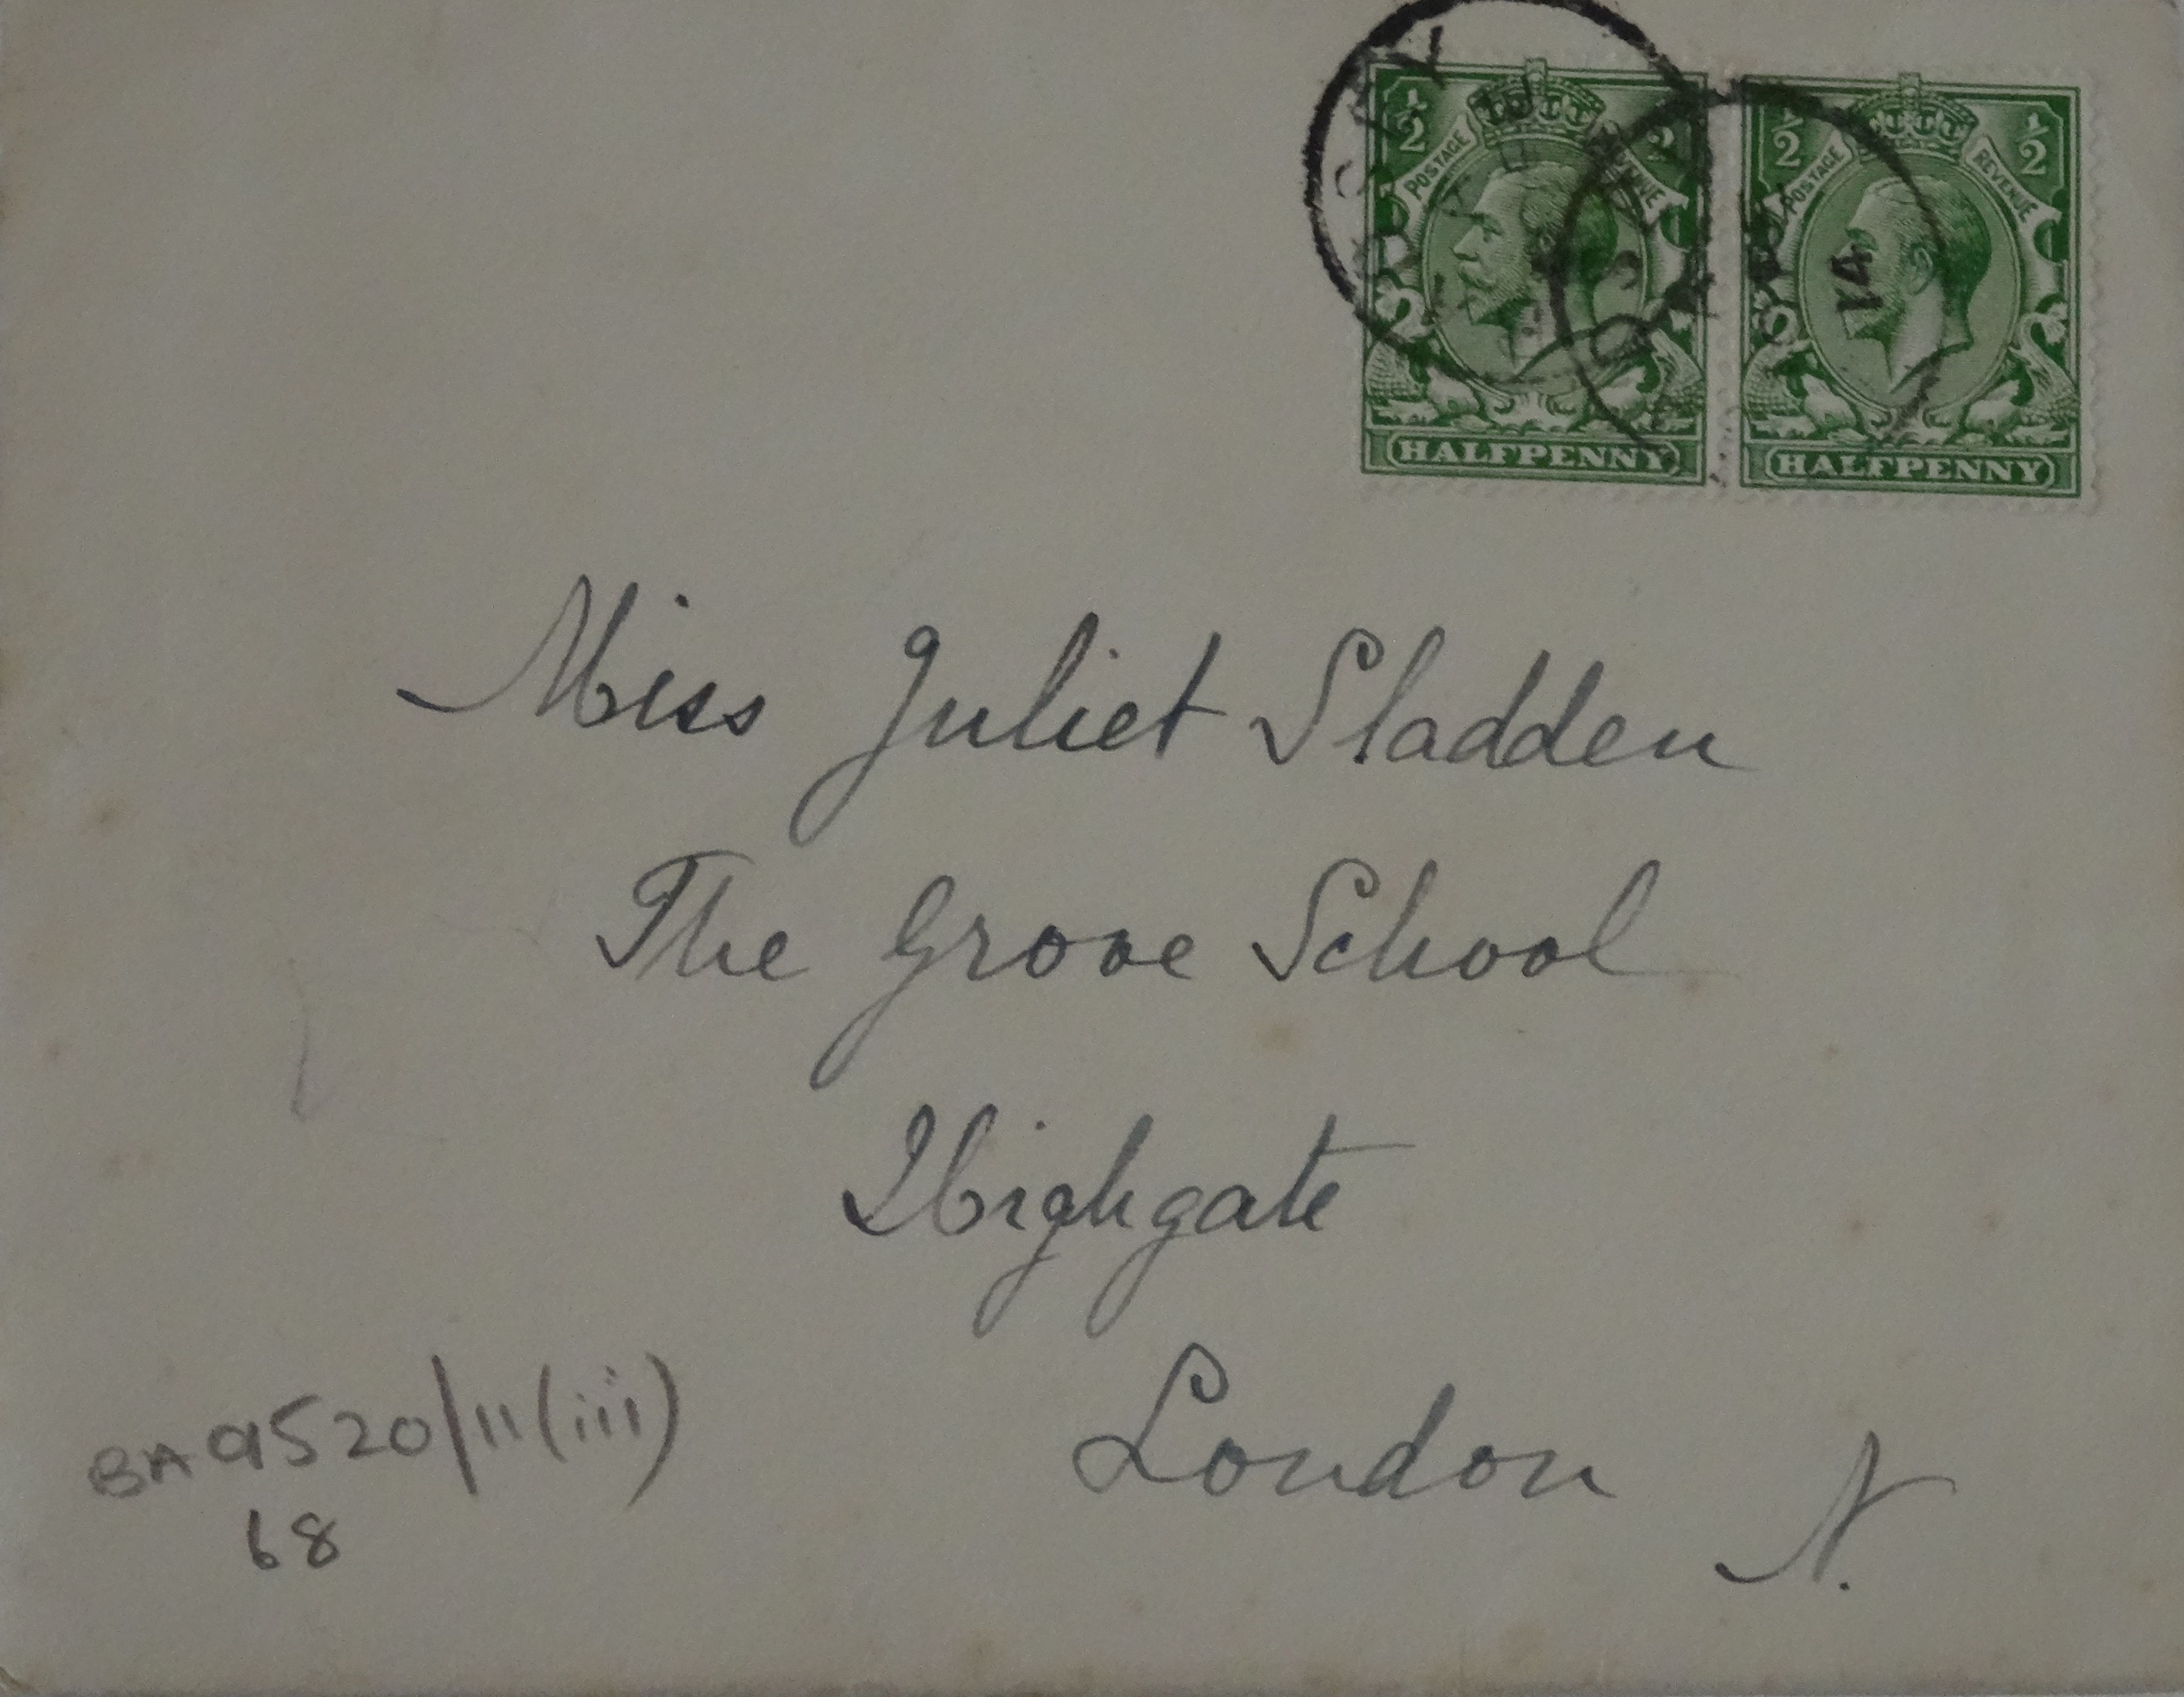 ½ POSTAGE REVENUE ½
½ POSTAGE REVENUE ½
14
HALFPENNY
HALFPENNY
Miss Juliet Sladden
The Grove School
Highgate
London N.
BA 9520/11(iii)
68